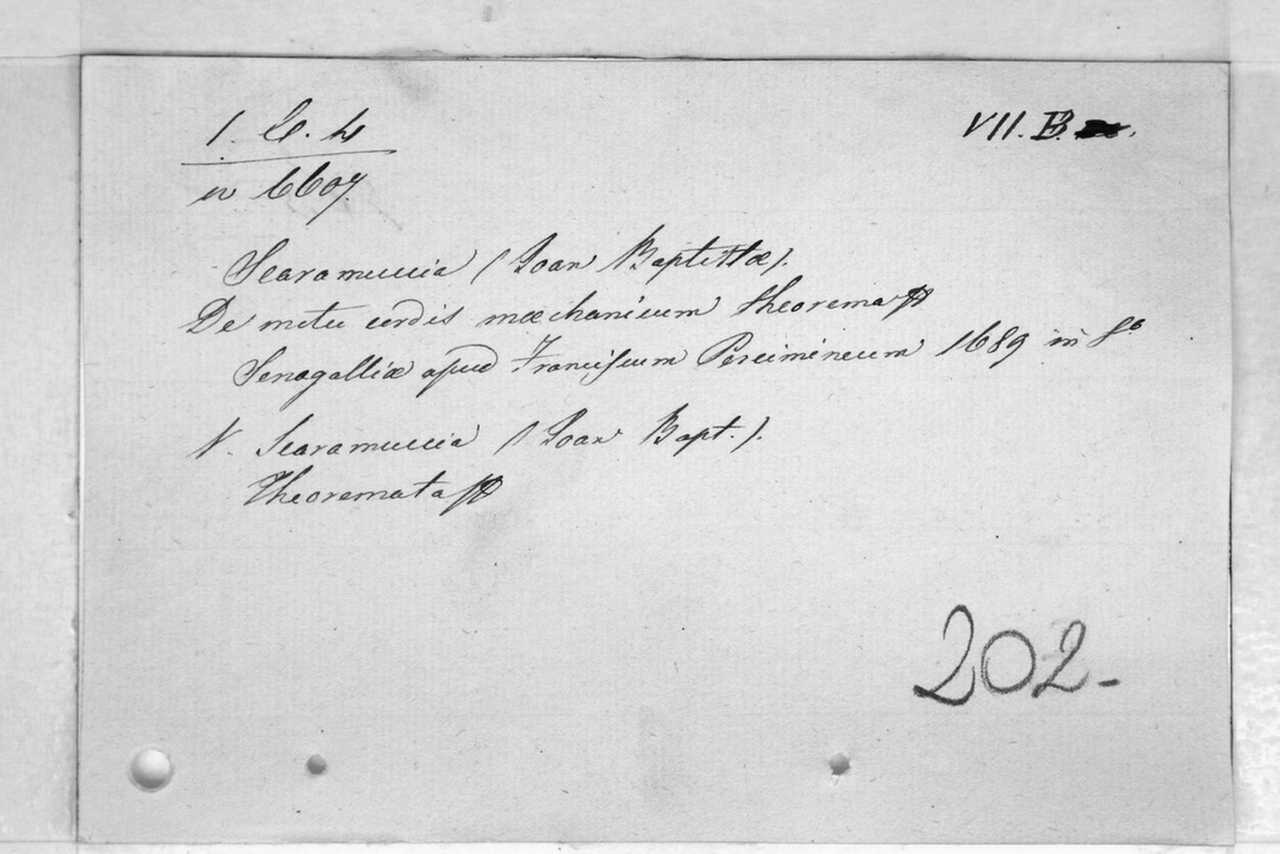 1. C. 4
VII. B.
n 6607.
Scaramuccia (Joan Baptistæ).
De motu cordis mæchanicum theorema
Senogalliæ apud Franciscum Percimineum 1689 in 8°
V. Scaramuccia (Joan Bapt.).
Theoremata
202-